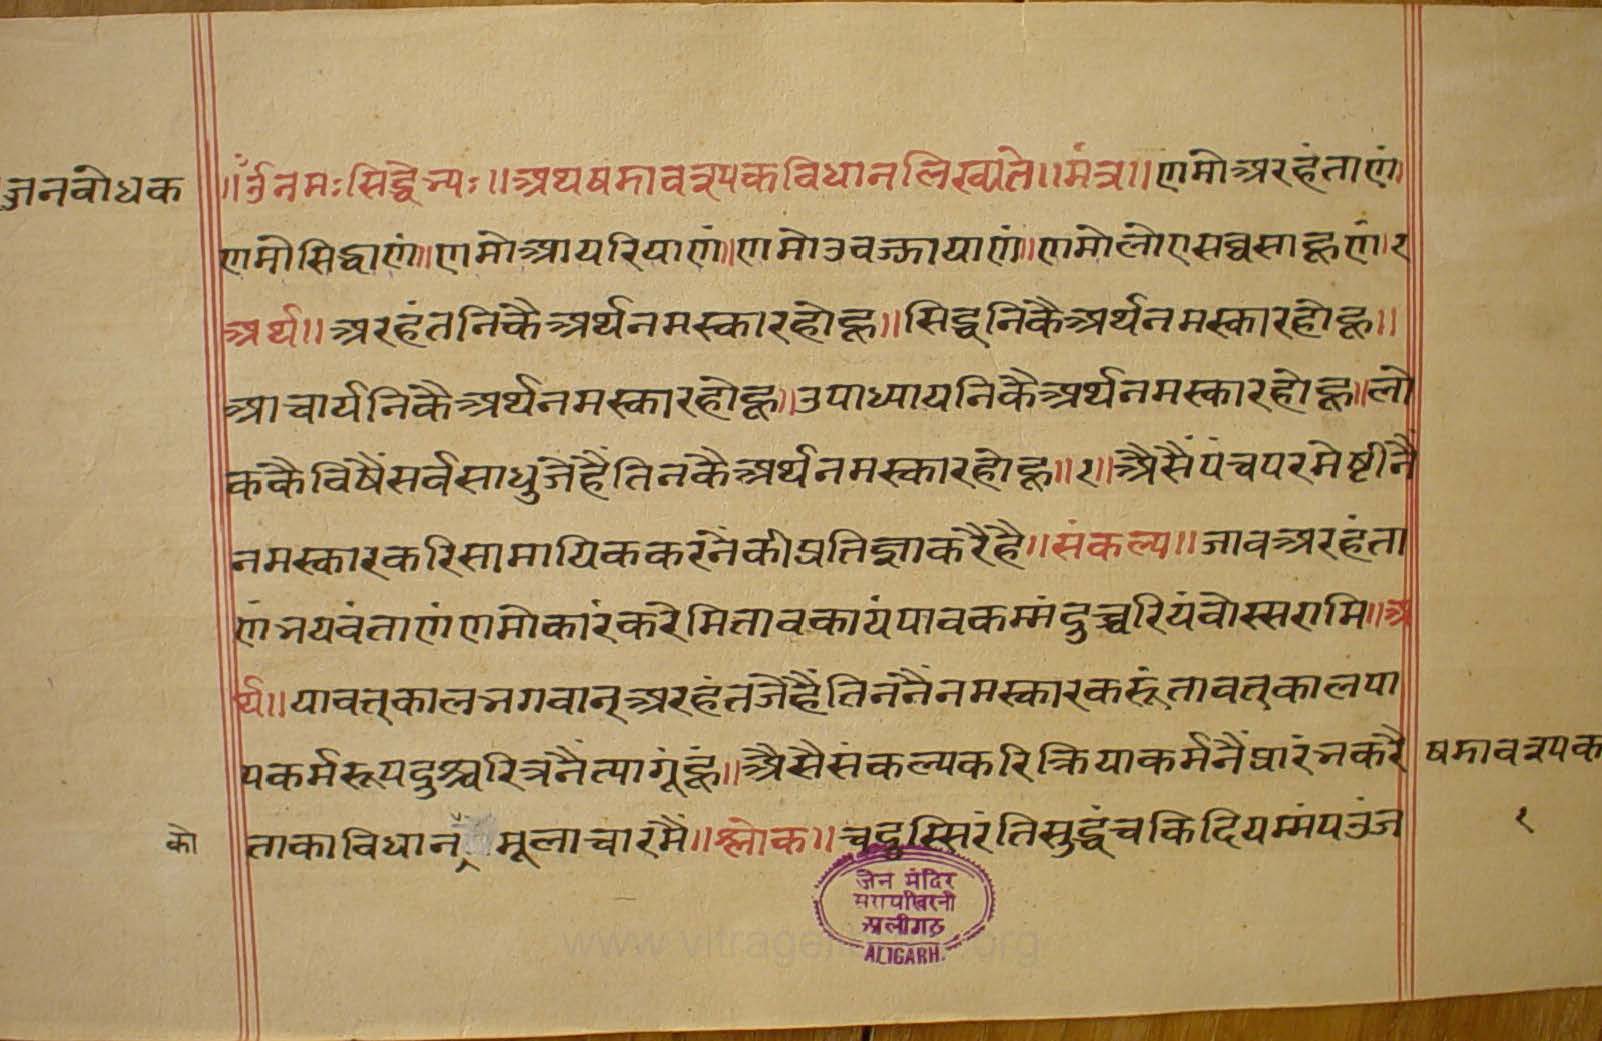 जनवोधक
॥ॐनमःसिद्धेभ्यः॥अथषमावश्यकविधानलिख्यते॥मंत्र॥णमोअरहंताणं॥
णमोसिद्धाणं॥णमोआयरियाणं॥णमोउवज्झायाणं॥णमोलोएसव्वसाहूणं॥१
अर्थ॥अरहंतनिकैअर्थनमस्कारहोहू॥सिद्धनिकैअर्थनमस्कारहोहू॥
आचार्यनिकैअर्थनमस्कारहोहू॥उपाध्यायनिकैअर्थनमस्कारहोहू॥लो
ककैविषैंसर्वसाधुजेहैंतिनकैअर्थनमस्कारहोहू॥१॥अैसैंपंचपरमेष्टीनैं
नमस्कारकरिसामायिककरनैकीप्रतिज्ञाकरैहै॥संकल्प॥जावअरहंता
णंभयवंताणंणमोकारंकरेमितावकायंपावकम्मंदुच्चरियंवोस्सरामि॥अ
र्थ॥यावत्कालभगवान्अरहंतजेहैंतिननैंनमस्कारकरूंतावत्कालपा
पकर्मरूपदुश्चरित्रनैंत्यागूंहूं॥अैसैसंकल्पकरिक्रियाकर्मनैंप्रारंभकरै
षमावश्यक
ताकाविधान मूलाचारमैं॥श्लोक॥चदुस्सिरंतिसुद्धंचकिदियम्मंपउंज
को
१
जैन मंदिर
सरायखिरनी
अलीगढ़
ALIGARH.